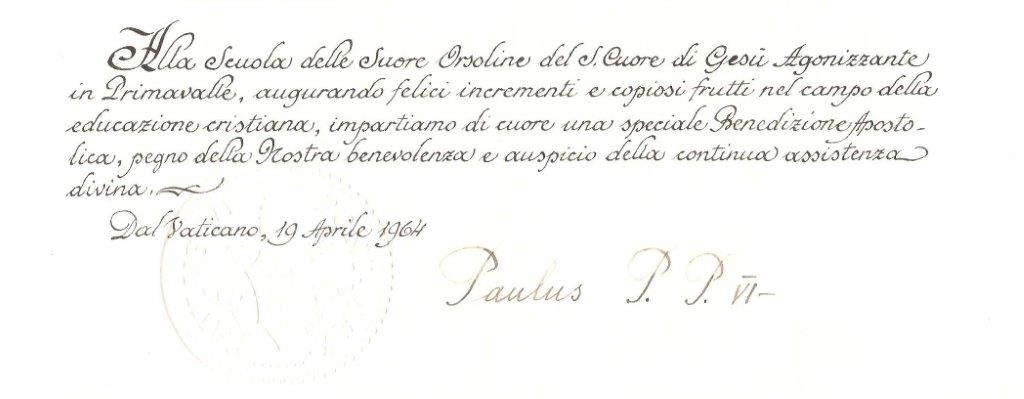 Alla Scuola delle Suore Orsoline del S. Cuore di Gesù Agonizzante
in Primavalle, augurando felici incrementi e copiosi frutti nel campo della
educazione cristiana, impartiamo di cuore una speciale Benedizione Aposto-
lica, pegno della Nostra benevolenza e auspicio della continua assistenza
divina.
Dal Vaticano, 19 Aprile 1964
Paulus P. P. VI-